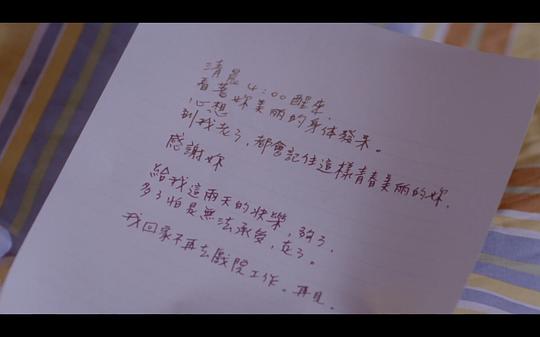 清晨4:00醒來,
看著妳美丽的身体發呆。
心想
到我老了,都會記住這樣青春美丽的妳,
感謝妳
給我這兩天的快樂,夠了,
多了怕是無法承受,走了。
我回家不再去戲院工作。再見.